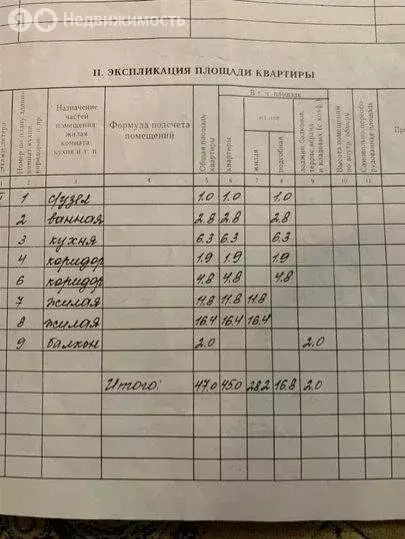 Я Недвижимость
II. ЭКСПЛИКАЦИЯ ПЛОЩАДИ КВАРТИРЫ
Этажи литера
Номер по плану здания комнат кухни коридоров и пр.
Назначение частей помещения жилая комната кухня и т. п.
Формула подсчета помещений
Общая площадь квартиры
В т. ч. площадь
квартиры
из нее
жилая
подсобная
лоджии, балконов, террас, веранд и кладовых (с коэф.)
Высота помещений по внутр. обмеру
Самовольно переоборудованная площадь
1 2 3 4 5 6 7 8 9 10 11
1 с/узел 1.0 1.0 1.0
2 ванная 2.8 2.8 2.8
3 кухня 6.3 6.3 6.3
4 коридор 1.9 1.9 1.9
6 коридор 4.8 4.8 4.8
7 жилая 11.8 11.8 11.8
8 жилая 16.4 16.4 16.4
9 балкон 2.0 2.0
Итого: 47.0 45.0 28.2 16.8 2.0